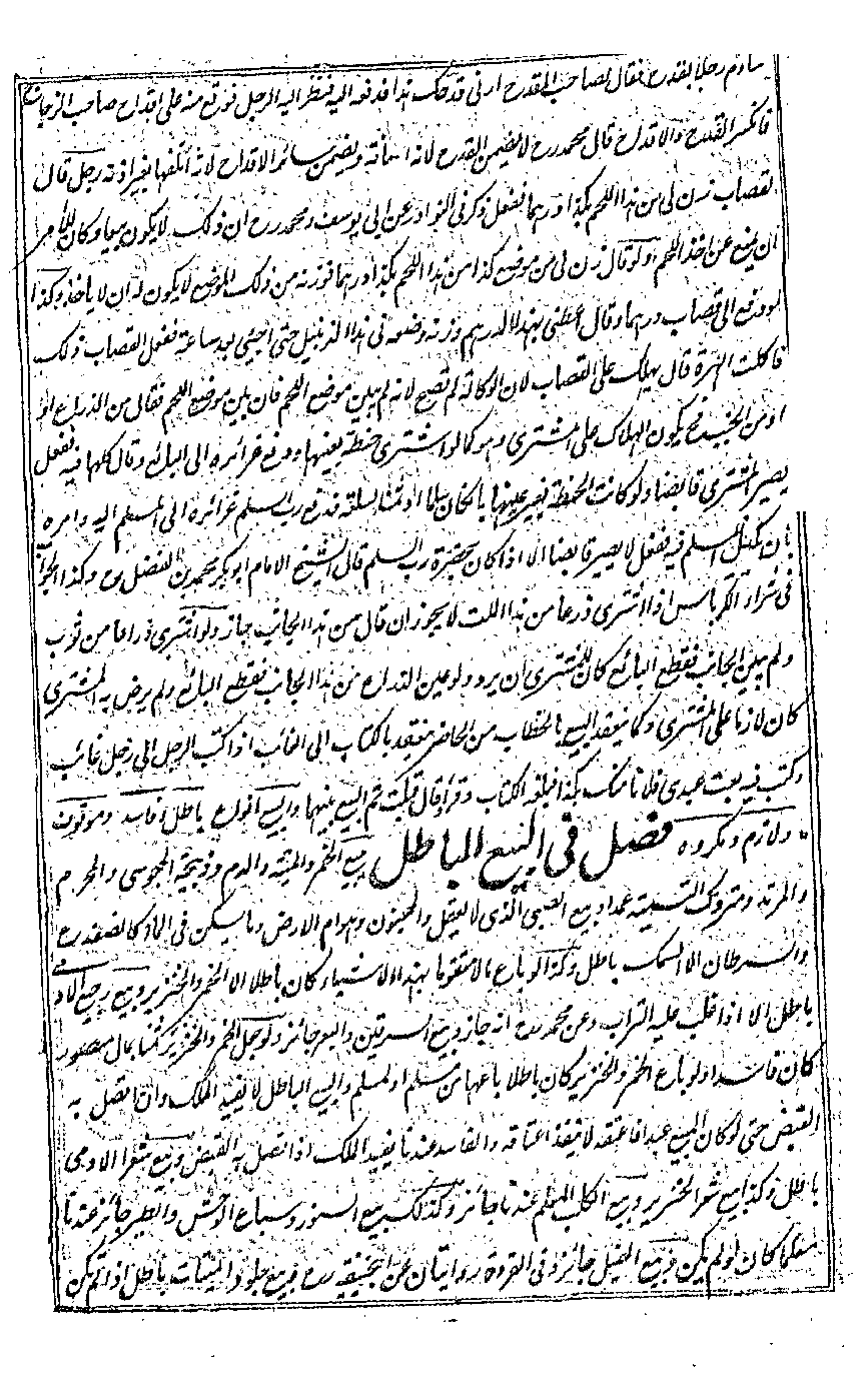 ساوم رجلا بقدح فقال لصاحب القدح ارنى قدحك هذا فدفعه اليه فنظر اليه الرجل فوقع منه على اقداح صاحب الزجاج
فانكسر القدح والاقداح قال محمد رح لا يضمن القدح لانه امانة ويضمن سائر الاقداح لانه اتلفها بغير اذنه رجل قال
لقصاب زن لى من هذا اللحم بكذا درهما ففعل ذكر فى النوادر عن ابى يوسف ومحمد رح ان ذلك لا يكون بيعا وكان للآمر
ان يمنع عن اخذ اللحم ولو قال زن لى من موضع كذا من هذا اللحم بكذا درهما فوزنه من ذلك الموضع لا يكون له ان لا ياخذ وكذا
لو دفع الى قصاب درهما وقال اعطنى بهذا الدرهم وزنه وضعه فى هذا الزنبيل حتى اجيئ بعد ساعة ففعل القصاب ذلك
فاكلت الهرة قال يهلك على القصاب لان الوكالة لم تصح لانه لم يبين موضع اللحم فان بين موضع اللحم فقال من الذراع او
او من الجنب فح يكون الهلاك على المشترى وهو كما لو اشترى حنطة بعينها ودفع غرائره الى البائع وقال كلها فيه ففعل
يصير المشترى قابضا ولو كانت الحنطة بغير عينها بان كان سلما او ثمنا لسلعة فدفع رب السلم غرائره الى المسلم اليه وامره
بان يكيل المسلم فيه ففعل لا يصير قابضا الا اذا كان بحضرة رب السلم قال الشيخ الامام ابو بكر محمد بن الفضل رح وكذا الجواب
فى شراء الكرباس اذا اشترى ذرعا من هذا لا يجوز ان قال من هذا الجانب جاز ولو اشترى ذراعا من ثوب
ولم يبين الجانب فقطع البائع كان للمشترى ان يرد ولو عين الذراع من هذا الجانب فقطع البائع ولم يرض به المشترى
كان لازما على المشترى وكما ينعقد البيع بالخطاب من الحاضر ينعقد بالكتاب الى الغائب اذا كتب الرجل الى رجل غائب
وكتب فيه بعت عبدى فلانا منك بكذا فبلغه الكتاب وقرأ وقال قبلت تم البيع بينهما والبيع انواع باطل وفاسد وموقوف
ولازم ومكروه فصل فى البيع الباطل بيع الخمر والميتة والدم وذبيحة المجوسى والمحرم
والمرتد ومتروك التسمية عمدا وبيع الصبى الذى لا يعقل والمجنون وهوام الارض وما يسكن فى الماء كالضفدع
والسرطان الا السمك باطل وكذا لو باع مالا متقوما بهذه الاشياء كان باطلا الا الخمر والخنزير وبيع رجيع الآدمى
باطل الا اذا غلب عليه التراب وعن محمد رح انه جاز وبيع السرقين والبعر جائز ولو جعل الخمر والخنزير ثمنا بمال مقصود
كان فاسدا ولو باع الخمر والخنزير كان باطلا باعها من مسلم او لمسلم والبيع الباطل لا يفيد الملك وان اتصل به
القبض حتى لو كان المبيع عبدا فاعتقه لا ينفذ اعتاقه والفاسد عندنا يفيد الملك اذا اتصل به القبض وبيع شعر الادمى
باطل وكذا بيع شعر الخنزير وبيع الكلب المعلم عندنا جائز وكذلك بيع السنور وسباع الوحش والطير جائز عندنا
معلما كان او لم يكن وبيع الفيل جائز وفى القردة روايتان عن ابى حنيفة رح وبيع جلود الميتات باطل اذا لم يكن